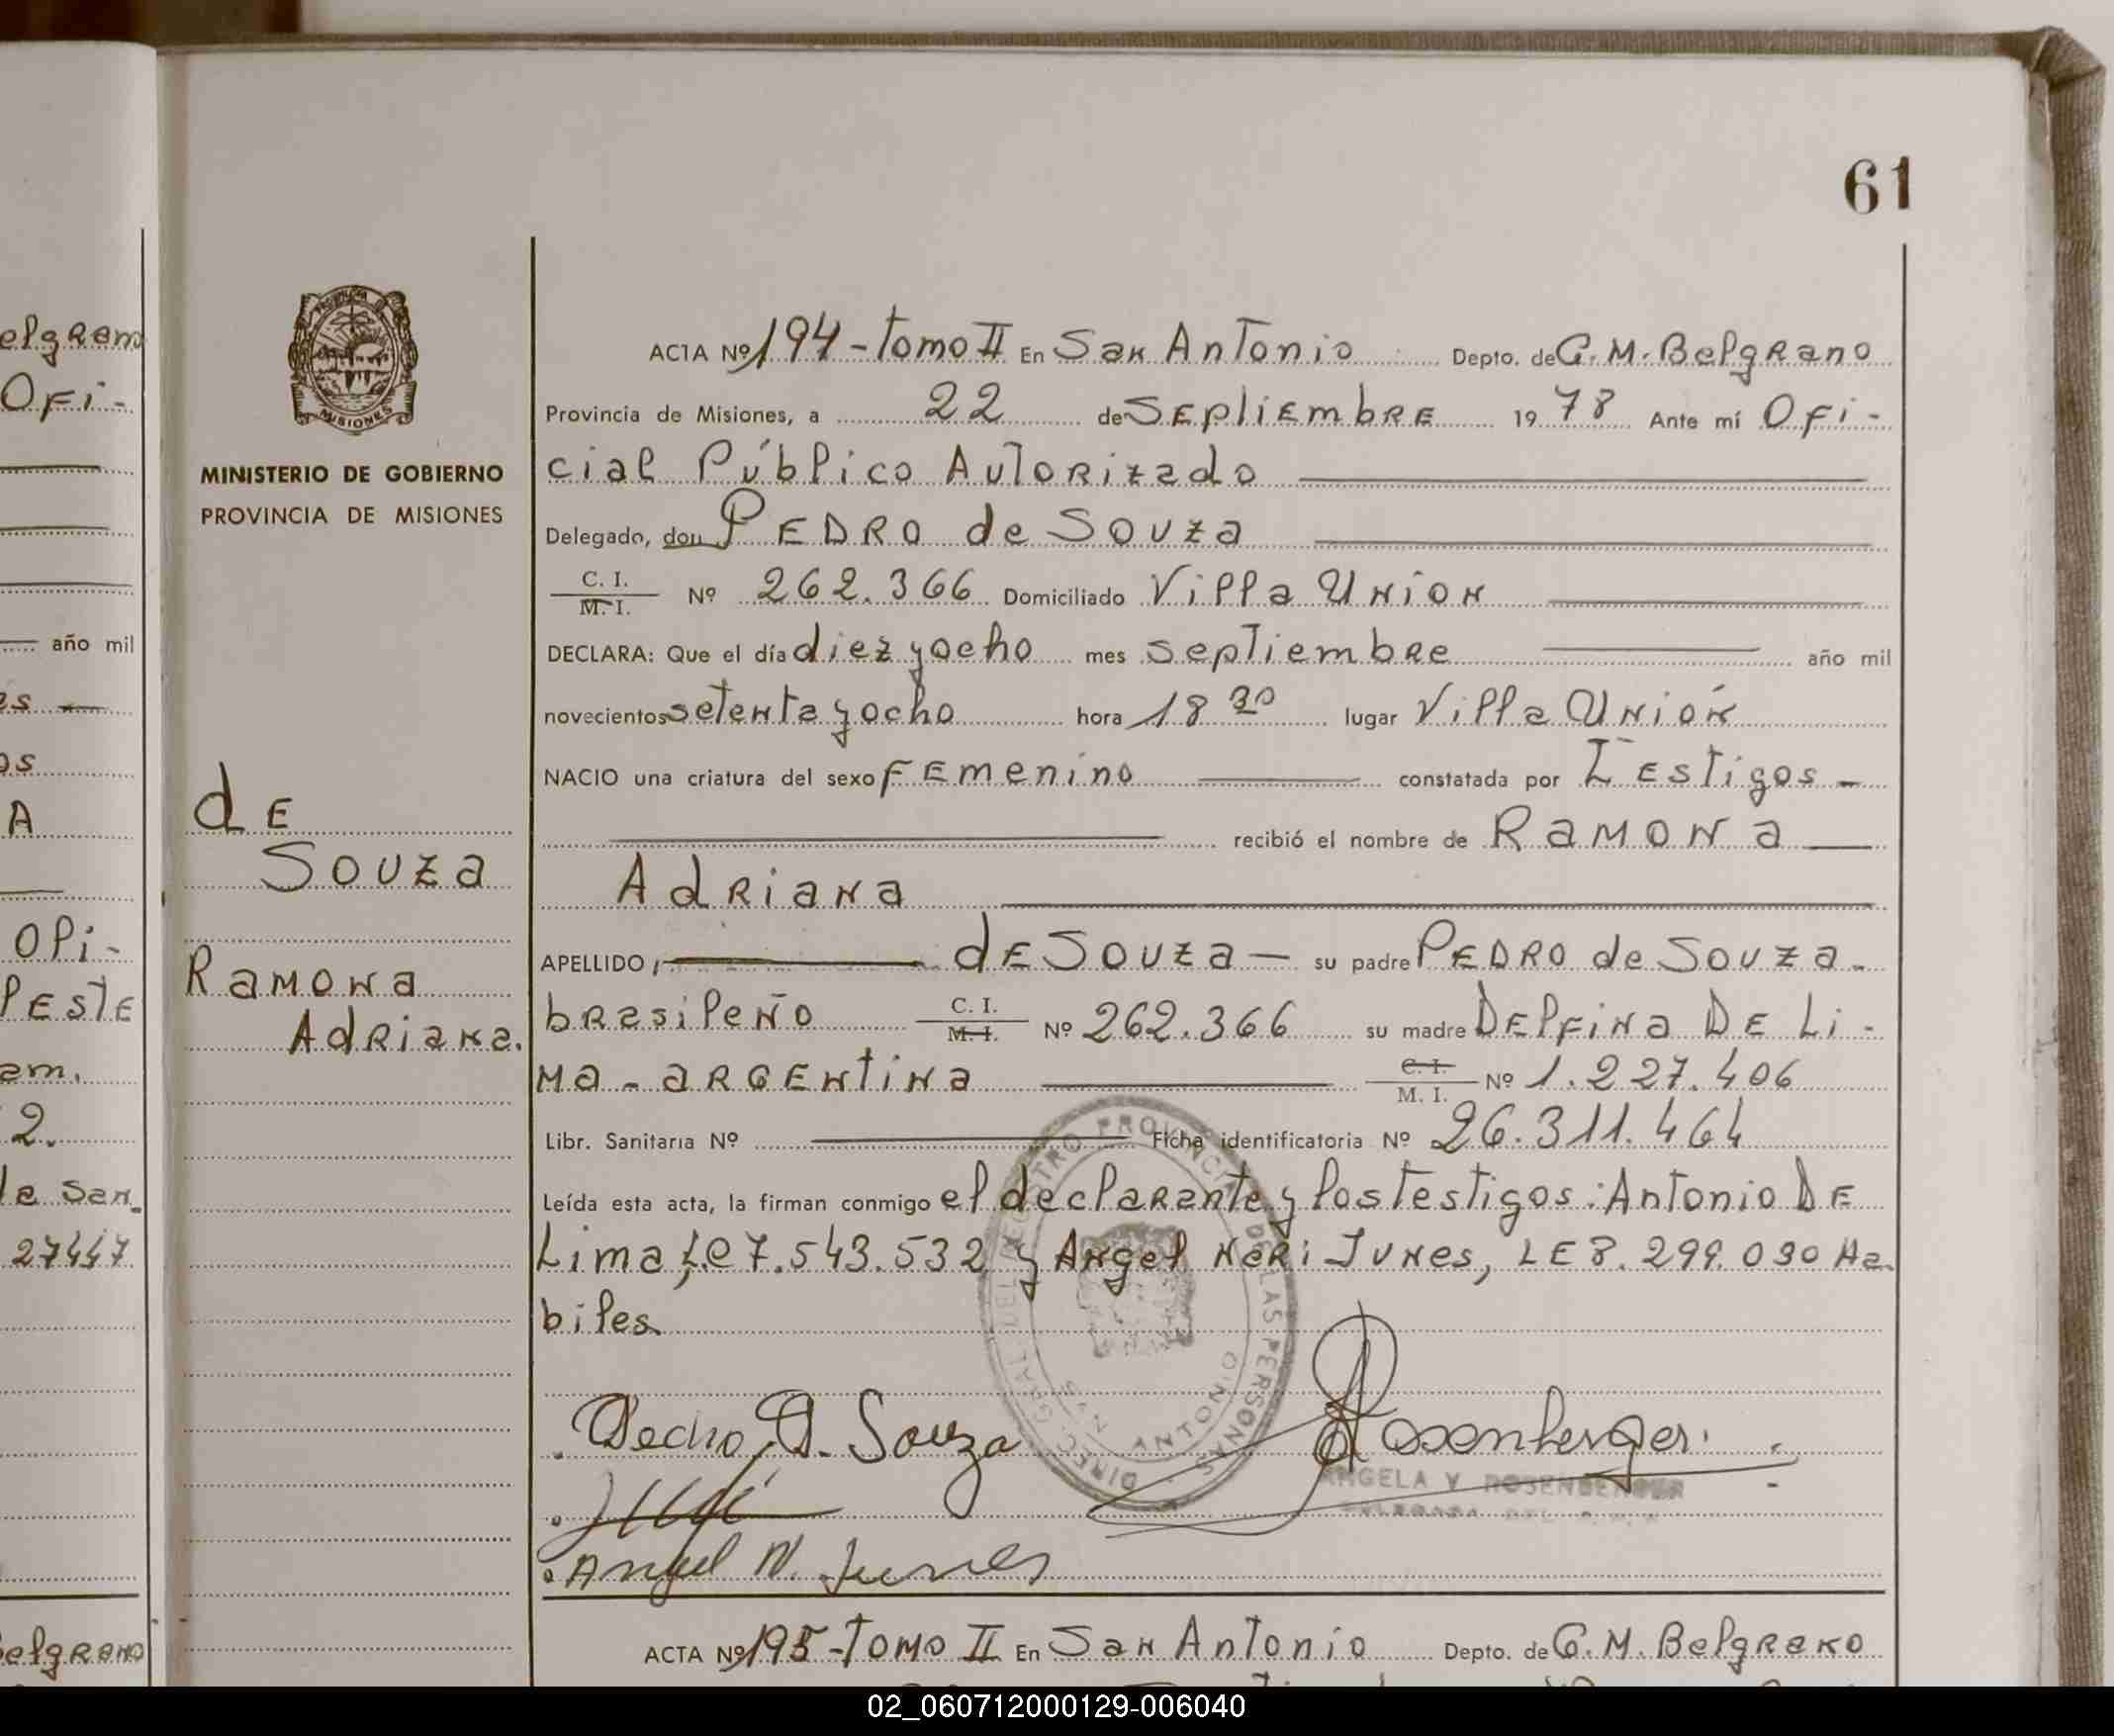 61
elgrano
Ofi-
año mil
es
os
A
Ofi-
leste
am.
2.
de San
27447
elgrano
MISIONES
MINISTERIO DE GOBIERNO
PROVINCIA DE MISIONES
de
Souza
Ramona
Adriana.
ACTA Nº 194-tomo II En San Antonio Depto. de G. M. Belgrano
Provincia de Misiones, a 22 de Septiembre 19 78 Ante mí Ofi-
cial Público Autorizado
Delegado, don PEDRO de Souza
C. I.
M. I. Nº 262.366 Domiciliado Villa Union
DECLARA: Que el día diez y ocho mes septiembre año mil
novecientos setenta y ocho hora 18 30 lugar Villa Unión
NACIO una criatura del sexo Femenino constatada por Testigos -
recibió el nombre de Ramona
Adriana
APELLIDO de Souza — su padre PEDRO de Souza -
brasileño C. I.
M. I. Nº 262.366 su madre Delfina De Li-
ma - argentina C. I.
M. I. Nº 1.227.406
Libr. Sanitaria Nº Ficha identificatoria Nº 26.311.464
Leída esta acta, la firman conmigo el declarante y los testigos: Antonio De
Lima, L.E 7.543.532 y Angel Neri Junes, LE 8.299.030 Ha-
biles.
DIREC. GRAL. DEL REGISTRO PROVINCIAL DE LAS PERSONAS
SAN ANTONIO
Pedro D. Souza
Rosenberger.
ANGELA V ROSENBERGER
Angel N. Junes
ACTA Nº 195-Tomo II En San Antonio Depto. de G. M. Belgrano
02_060712000129-006040